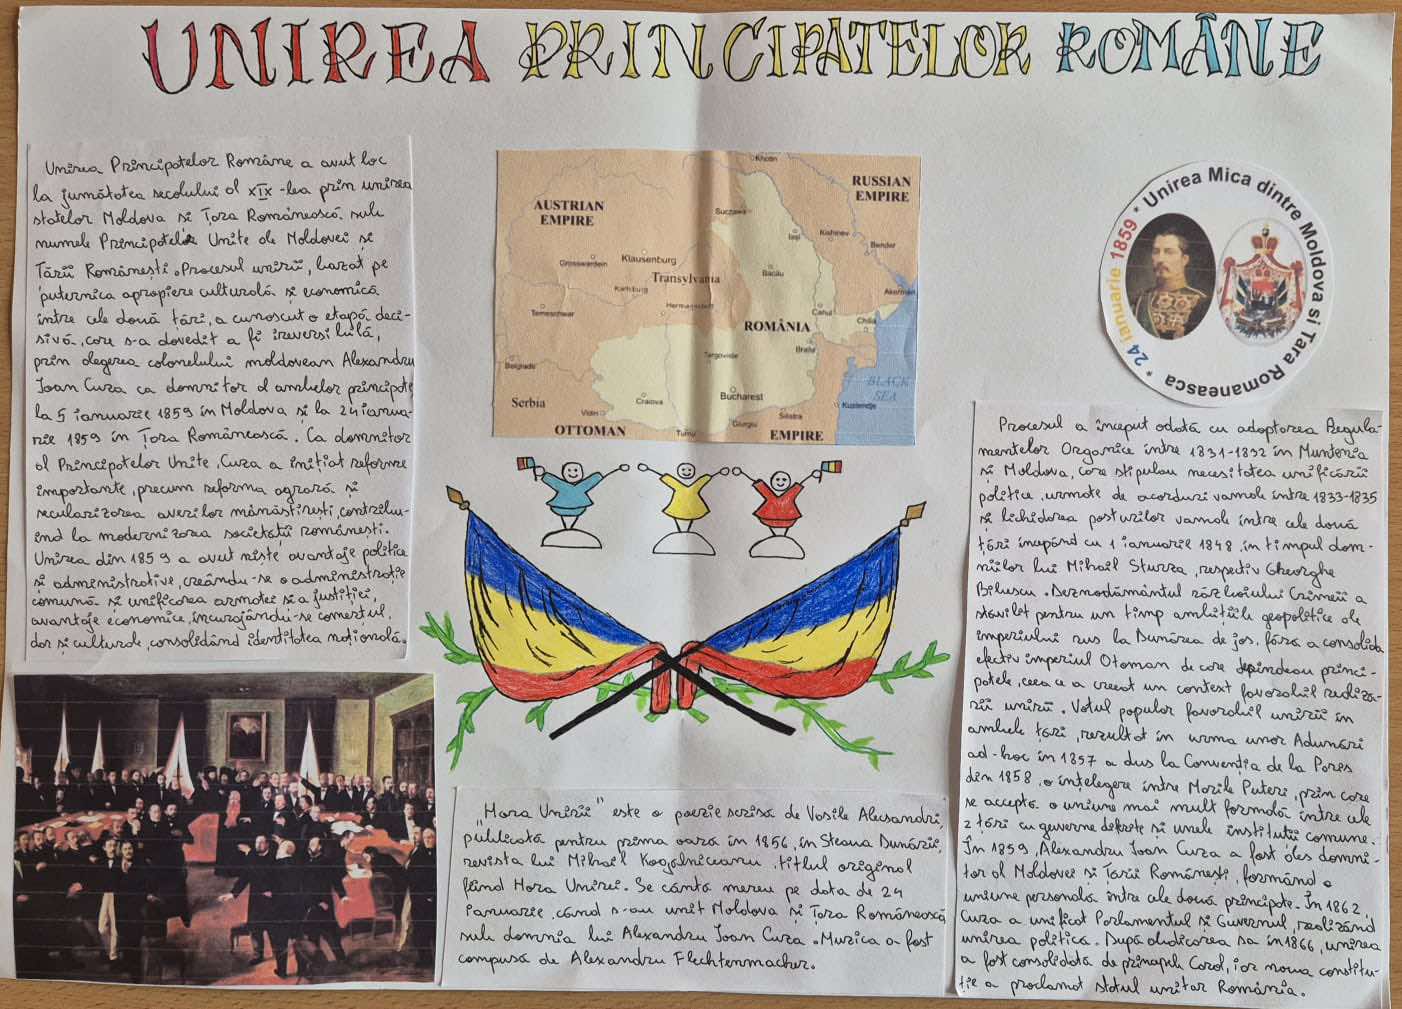 UNIREA PRINCIPATELOR ROMÂNE
Unirea Principatelor Române a avut loc
la jumătatea secolului al XIX-lea prin unirea
statelor Moldova și Țara Românească sub
numele Principatele Unite ale Moldovei și
Țării Românești. Procesul unirii, bazat pe
puternica apropiere culturală și economică
între cele două țări, a cunoscut o etapă deci-
sivă, care s-a dovedit a fi ireversibilă,
prin alegerea colonelului moldovean Alexandru
Ioan Cuza ca domnitor al ambelor principate
la 5 ianuarie 1859 în Moldova și la 24 ianua-
rie 1859 în Țara Românească. Ca domnitor
al Principatelor Unite, Cuza a inițiat reforme
importante, precum reforma agrară și
secularizarea averilor mănăstirești, contribu-
ind la modernizarea societății românești.
Unirea din 1859 a avut niște avantaje politice
și administrative, creându-se o administrație
comună și unificarea armatei și a justiției,
avantaje economice, încurajându-se comerțul,
dar și culturale, consolidând identitatea națională.
Khotin
RUSSIAN
EMPIRE
AUSTRIAN
EMPIRE
Suczawa
Iași
Kishinev
Bender
Grosswardein
Klausenburg
Transylvania
Bacău
Karlsburg
Akerman
Temeschwar
Hermannstadt
Cahul
Chilia
ROMÂNIA
Braila
Belgrade
Targoviste
BLACK
SEA
Serbia
Craiova
Bucharest
Kustendje
Vidin
Silistra
Giurgiu
OTTOMAN
Turnu
EMPIRE
* 24 ianuarie 1859 * Unirea Mica dintre Moldova si Tara Romaneasca *
Procesul a început odată cu adoptarea Regula-
mentelor Organice între 1831-1832 în Muntenia
și Moldova, care stipulau necesitatea unificării
politice, urmate de acorduri vamale între 1833-1835
și lichidarea posturilor vamale între cele două
țări începând cu 1 ianuarie 1848, în timpul dom-
niilor lui Mihail Sturza, respectiv Gheorghe
Bibescu. Deznodământul războiului Crimeii a
stavilet pentru un timp ambițiile geopolitice ale
imperiului rus la Dunărea de jos, fără a consolida
efectiv imperiul Otoman de care depindeau princi-
patele, ceea ce a creat un context favorabil realiză-
rii unirii. Votul popular favorabil unirii în
ambele țări, rezultat în urma unor Adunări
ad-hoc în 1857 a dus la Convenția de la Paris
din 1858, o înțelegere între Marile Puteri, prin care
se accepta o uniune mai mult formală între cele
2 țări cu guverne diferite și unele instituții comune.
În 1859, Alexandru Ioan Cuza a fost ales domni-
tor al Moldovei și Țării Românești, formând o
uniune personală între cele două principate. În 1862,
Cuza a unificat Parlamentul și Guvernul, realizând
unirea politică. După abdicarea sa în 1866, unirea
a fost consolidată de principele Carol, iar noua constitu-
ție a proclamat statul unitar România.
"Hora Unirii" este o poezie scrisă de Vasile Alecsandri,
publicată pentru prima oară în 1856, în Steaua Dunării,
revista lui Mihail Kogălniceanu, titlul original
fiind Hora Unirei. Se cântă mereu pe data de 24
ianuarie, când s-au unit Moldova și Țara Românească
sub domnia lui Alexandru Ioan Cuza. Muzica a fost
compusă de Alexandru Flechtenmacher.